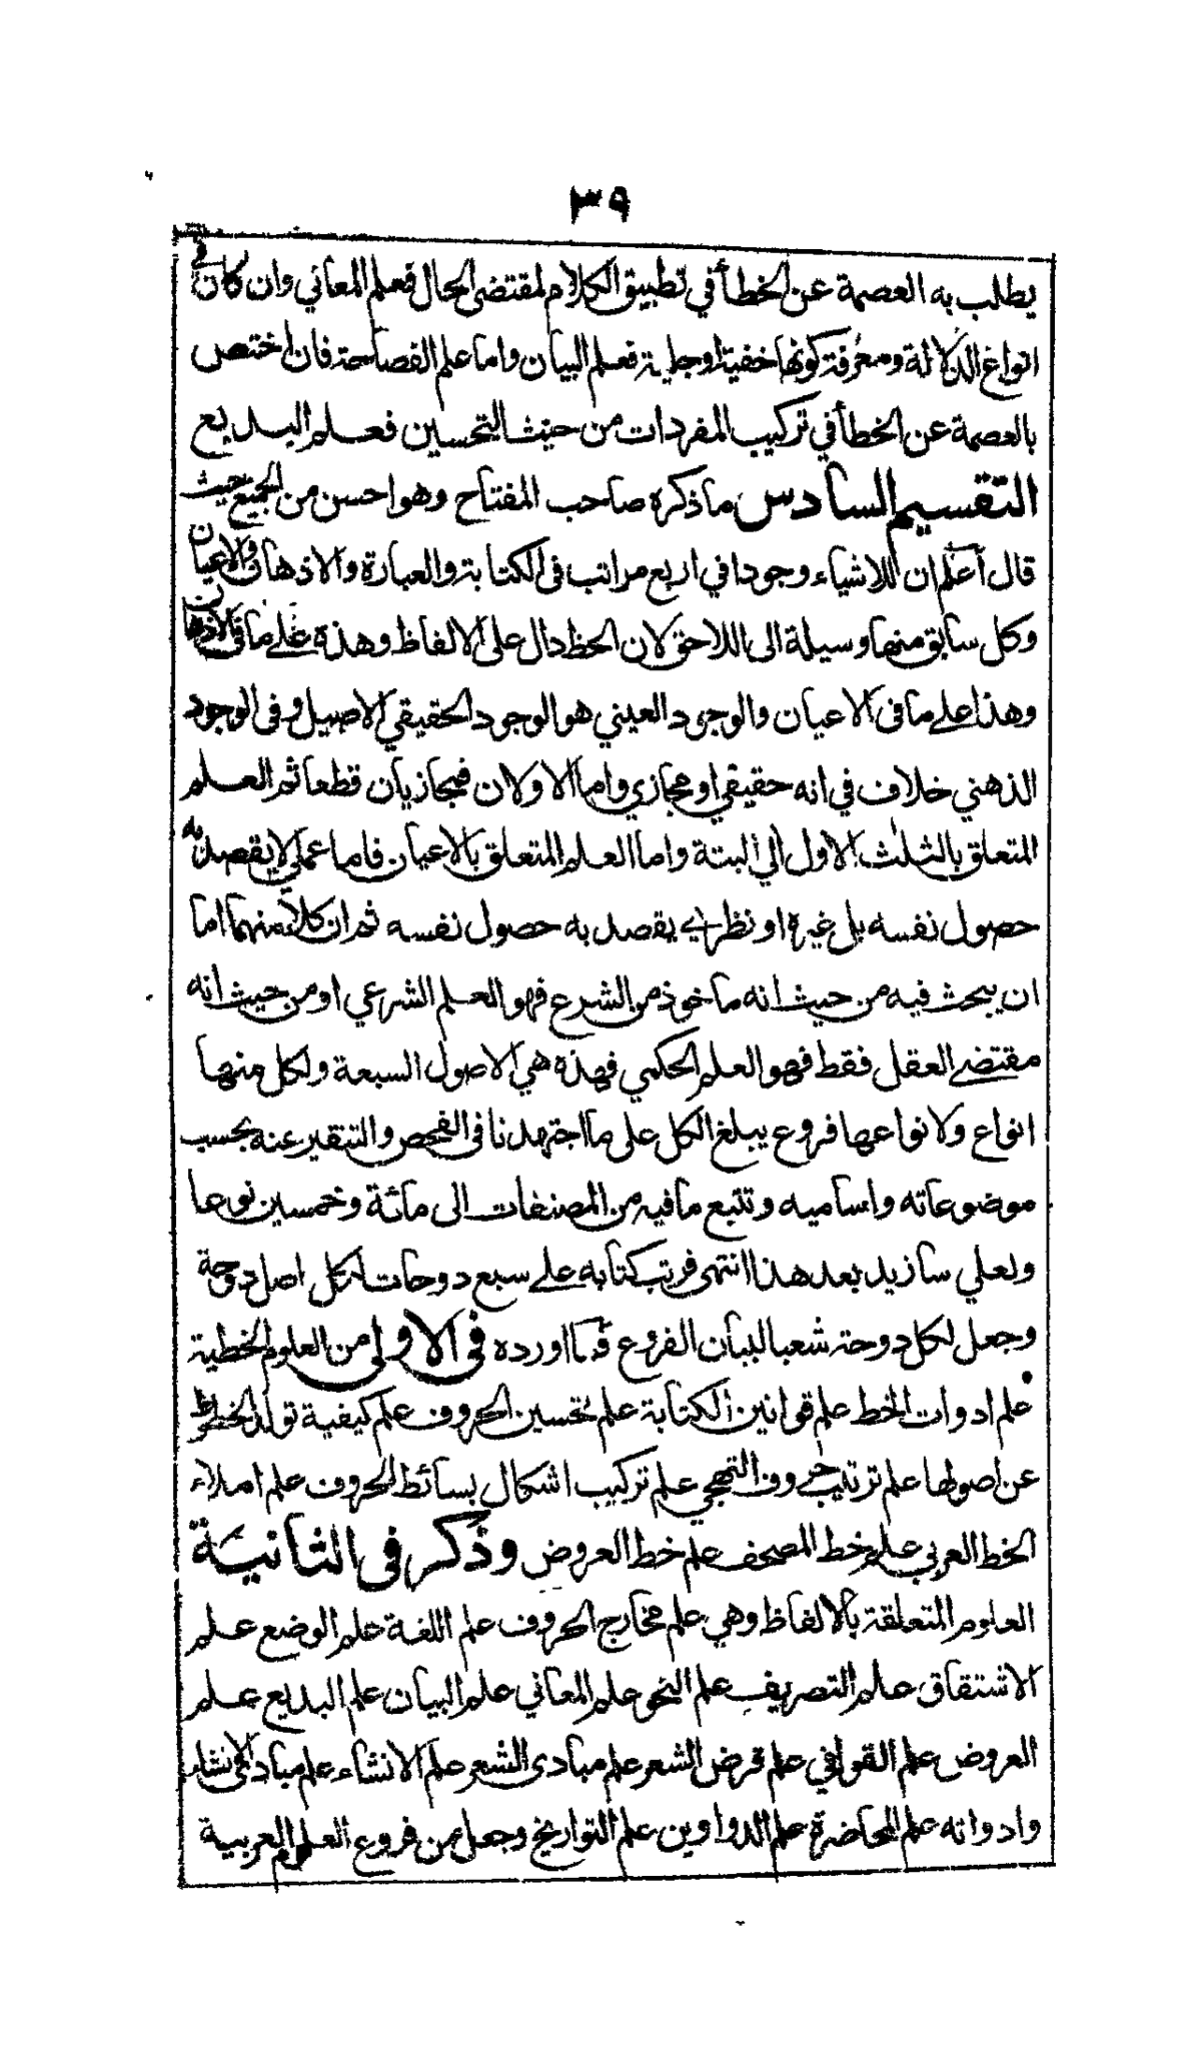 ٣٩
يطلب به العصمة عن الخطأ في تطبيق الكلام لمقتضى الحال فعلم المعاني وان كان في
انواع الدلالة ومعرفة كونها خفية او جلية فعلم البيان واما علم الفصاحة فان اختص
بالعصمة عن الخطأ في تركيب المفردات من حيث التحسين فعلم البديع
التقسيم السادس ما ذكره صاحب المفتاح وهو احسن من الجميع حيث
قال أعلم ان للاشياء وجودا في اربع مراتب في الكتابة والعبارة والاذهان والاعيان
وكل سابق منها وسيلة الى اللاحق لان الخط دال على الالفاظ وهذه على ما في الاذهان
وهذا على ما في الاعيان والوجود العيني هو الوجود الحقيقي الاصيل وفي الوجود
الذهني خلاف في انه حقيقي او مجازي واما الاولان فمجازيان قطعا ثم العلم
المتعلق بالثلث الاول الي البتة واما العلم المتعلق بالاعيان فاما عملي لا يقصد به
حصول نفسه بل غيره او نظري يقصد به حصول نفسه ثم ان كلاً منهما اما
ان يبحث فيه من حيث انه ماخوذ من الشرع فهو العلم الشرعي او من حيث انه
مقتضى العقل فقط فهو العلم الحكمي فهذه هي الاصول السبعة ولكل منها
انواع ولانواعها فروع يبلغ الكل على ما اجتهدنا في الفحص والتنقير عنه بحسب
موضوعاته واساميه وتتبع ما فيه من المصنفات الى مائة وخمسين نوعا
ولعلي سازيد بعد هذا انتهى فرتب كتابه على سبع دوحات لكل اصل دوحة
وجعل لكل دوحة شعبا لبيان الفروع فما اورده في الاولى من العلوم الخطية
علم ادوات الخط علم قوانين الكتابة علم تحسين الحروف علم كيفية تولد الخطوط
عن اصولها علم ترتيب حروف التهجي علم تركيب اشكال بسائط الحروف علم املاء
الخط العربي علم خط المصحف علم خط العروض وذكر في الثانية
العلوم المتعلقة بالالفاظ وهي علم مخارج الحروف علم اللغة علم الوضع علم
الاشتقاق علم التصريف علم النحو علم المعاني علم البيان علم البديع علم
العروض علم القوافي علم قرض الشعر علم مبادى الشعر علم الانشاء علم مبادى الانشاء
وادواته علم المحاضرة علم الدواوين علم التواريخ وجعل من فروع العلوم العربية